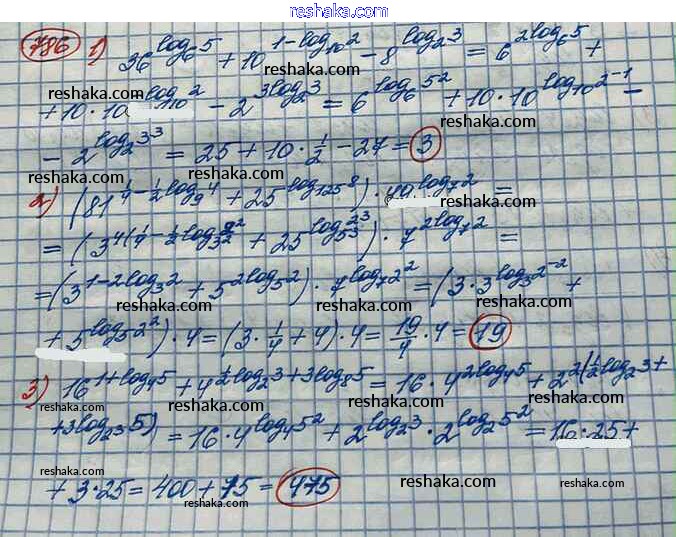 reshaka.com
786 1) 36^{log_6 5} + 10^{1-log_{10} 2} - 8^{log_2 3} = 6^{2log_6 5} +
reshaka.com reshaka.com
+ 10·10^{-log_{10} 2} - 2^{3log_2 3} = 6^{log_6 5^2} + 10·10^{log_{10} 2^{-1}} -
reshaka.com
- 2^{log_2 3^3} = 25 + 10·1/2 - 27 = 3
reshaka.com reshaka.com
2) (81^{1/4-1/2 log_9 4} + 25^{log_{125} 8})·49^{log_7 2} =
reshaka.com
= (3^{4(1/4-1/2 log_{3^2} 2^2} + 25^{log_{5^3} 2^3})·7^{2log_7 2} =
reshaka.com
= (3^{1-2log_3 2} + 5^{2log_5 2})·7^{log_7 2^2} = (3·3^{log_3 2^{-2}} +
reshaka.com reshaka.com
+ 5^{log_5 2^2})·4 = (3·1/4 + 4)·4 = 19/4·4 = 19
reshaka.com reshaka.com
3) 16^{1+log_4 5} + 4^{1/2 log_2 3+3log_8 5} = 16·4^{2log_4 5} + 2^{2(1/2 log_2 3+
reshaka.com reshaka.com
+3log_{2^3} 5)} = 16·4^{log_4 5^2} + 2^{log_2 3}·2^{log_2 5^2} = 16·25 +
reshaka.com reshaka.com
+ 3·25 = 400 + 75 = 475
reshaka.com reshaka.com
reshaka.com reshaka.com reshaka.com